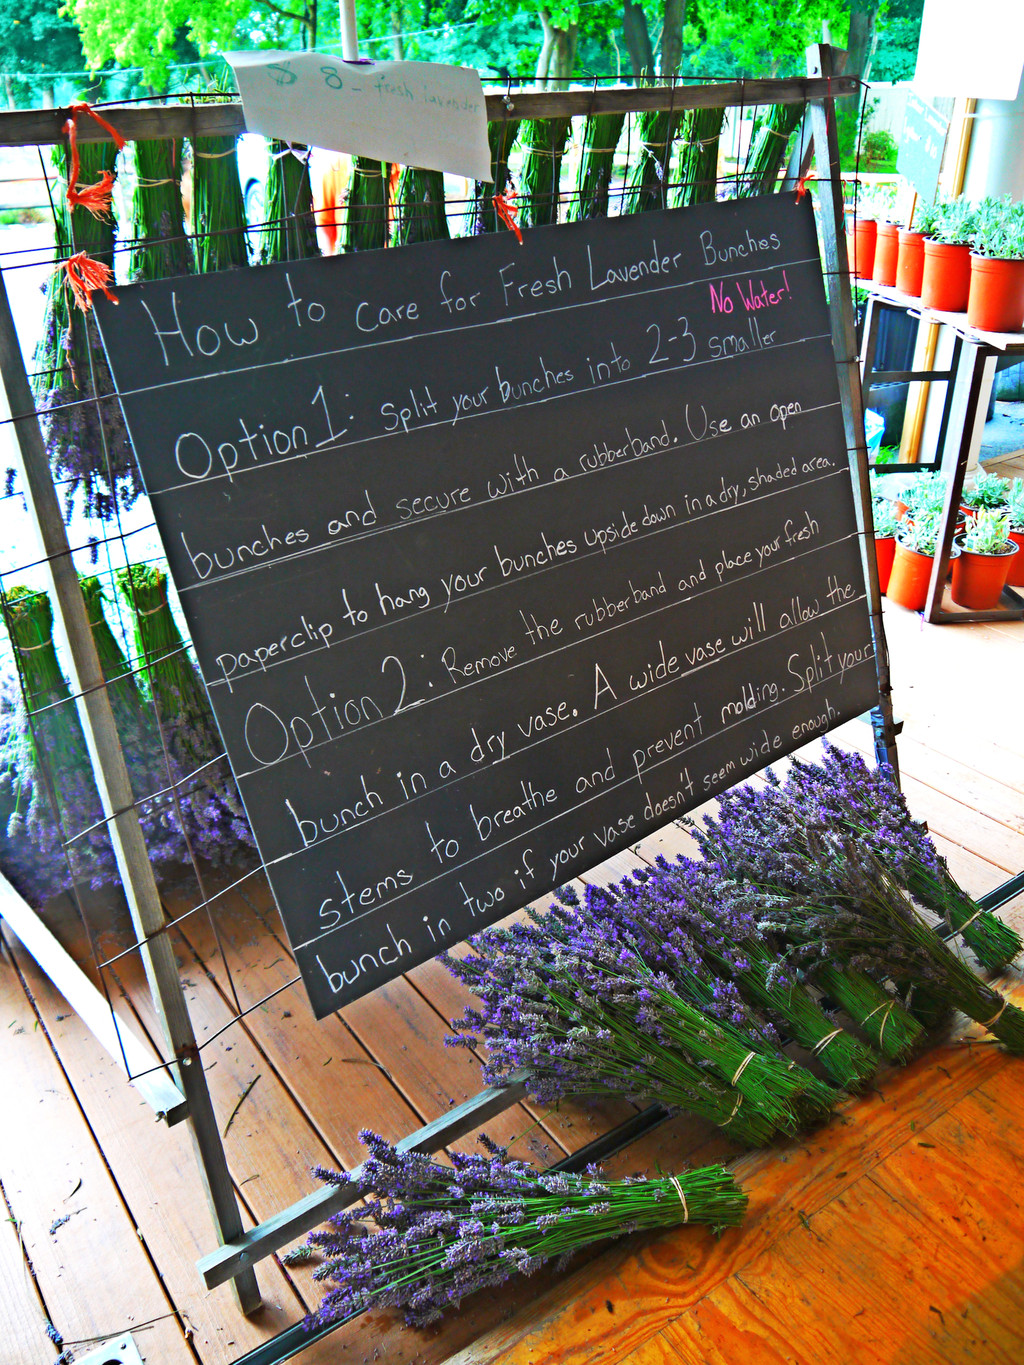 $ 8 - fresh lavender
How to care for Fresh Lavender Bunches
No Water!
Option 1: Split your bunches into 2-3 smaller
bunches and secure with a rubberband. Use an open
paperclip to hang your bunches upside down in a dry, shaded area.
Option 2: Remove the rubberband and place your fresh
bunch in a dry vase. A wide vase will allow the
stems to breathe and prevent molding. Split your
bunch in two if your vase doesn't seem wide enough.